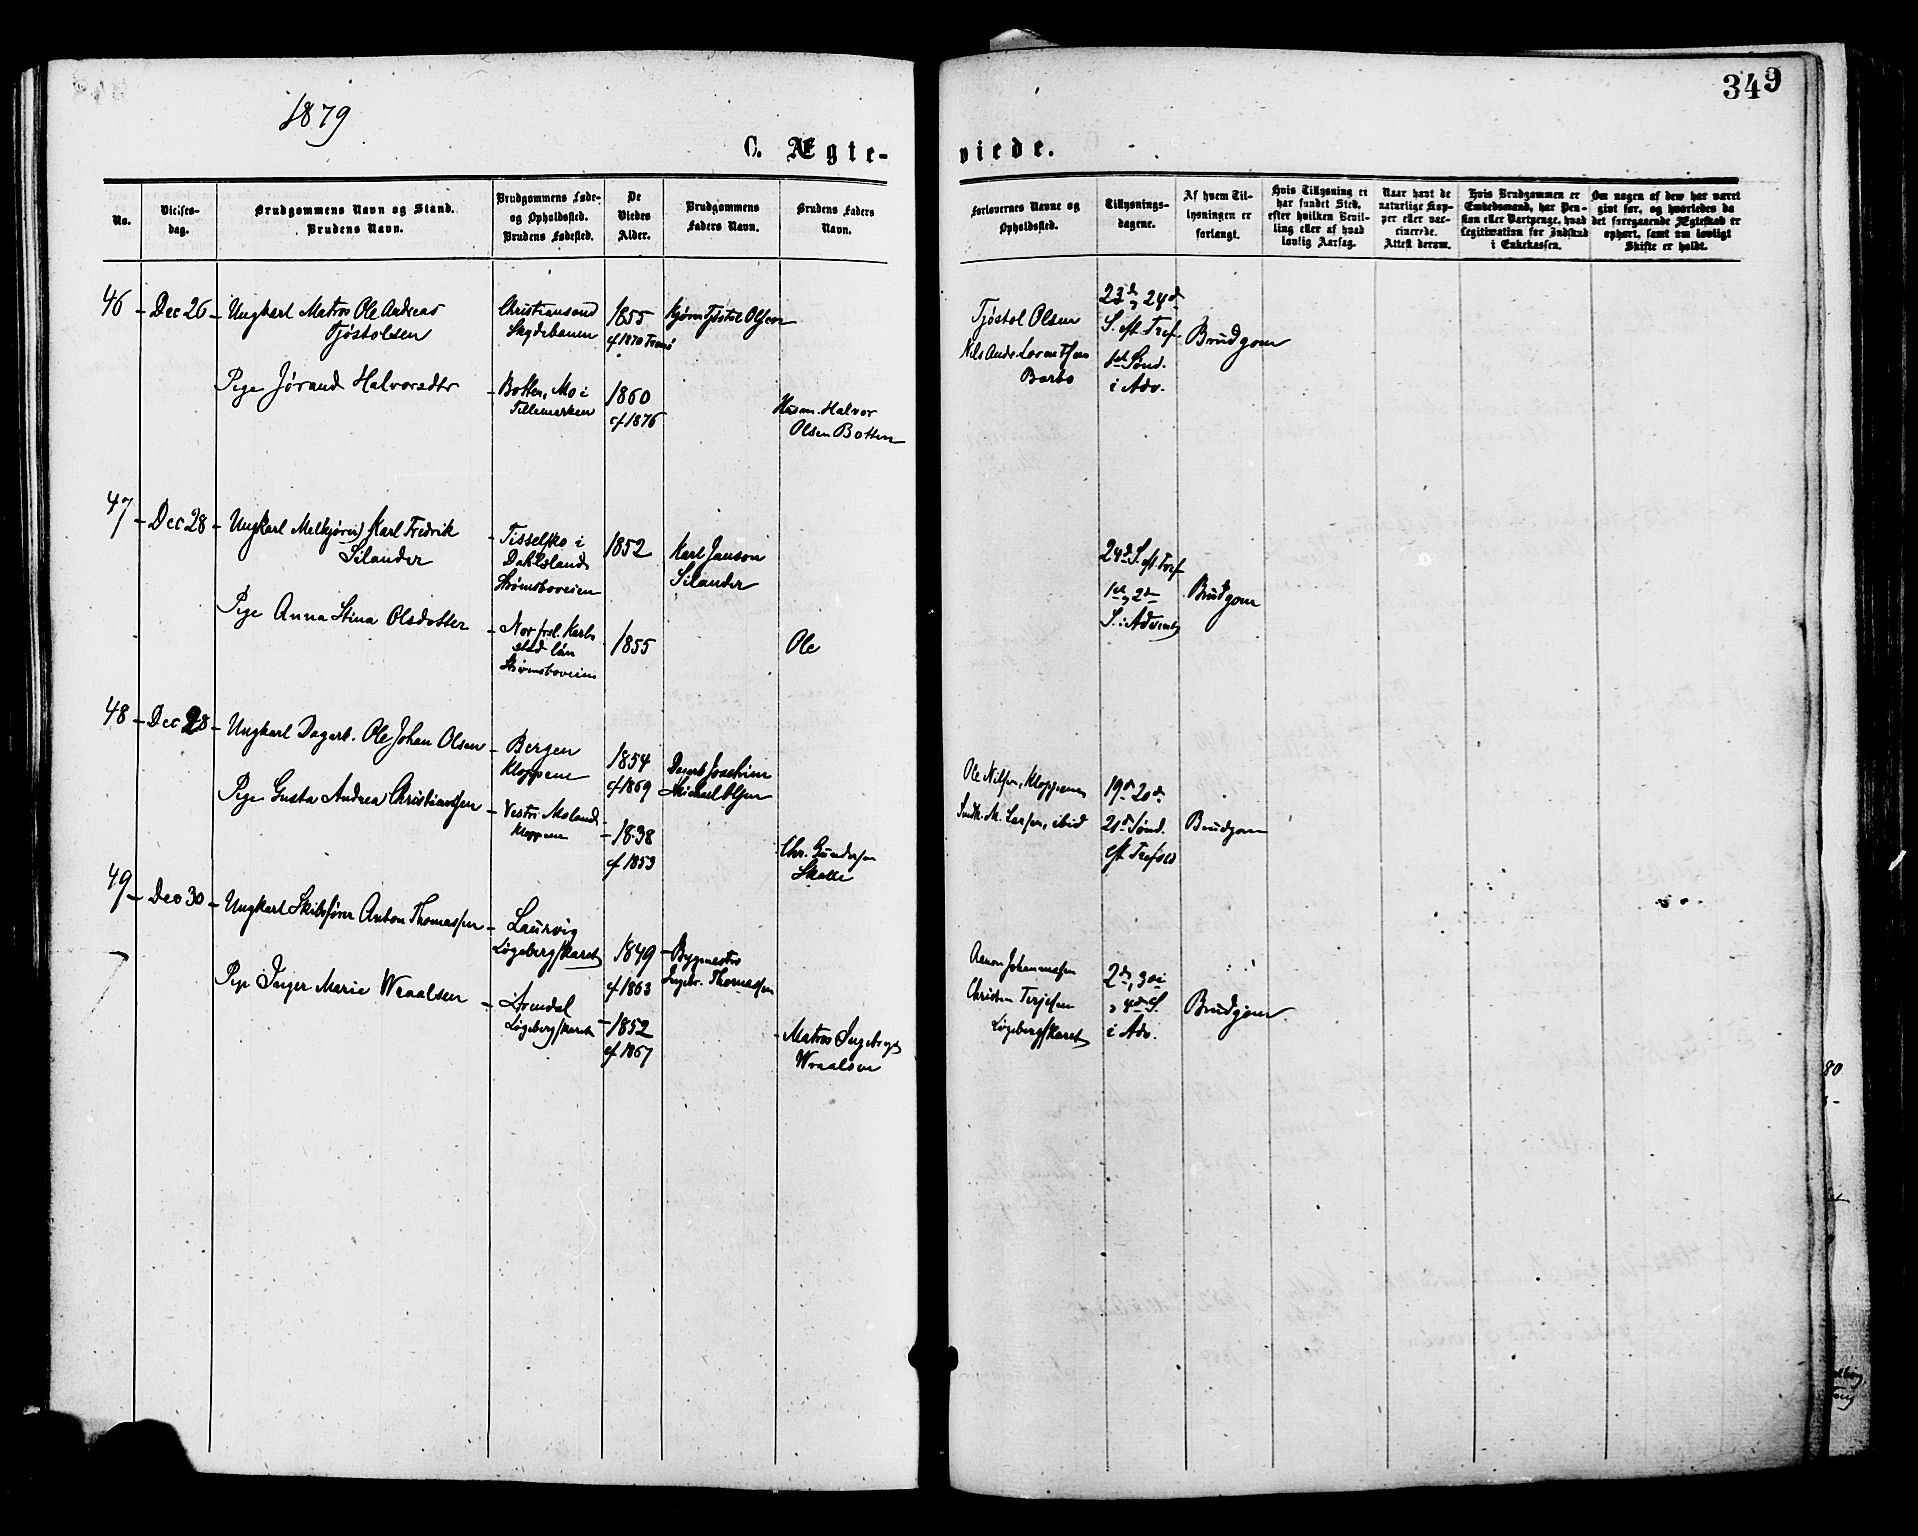 349
1879
C. Ægte-
viede.
No.
Vielses-
dag.
Brudgommens Navn og Stand.
Brudens Navn.
Brudgommens Føde-
og Opholdsted.
Brudens Fødested.
De
Viedes
Alder.
Brudgommens
Faders Navn.
Brudens Faders
Navn.
Forlovernes Navne og
Opholdsted.
Tillysnings-
dagene.
Af hvem Til-
lysningen er
forlangt.
Hvis Tillysning ei
har fundet Sted,
efter hvilken Bevil-
ling eller af hvad
lovlig Aarsag.
Naar havt de
naturlige Kop-
per eller vac-
cinerede.
Attest derom.
Hvis Brudgommen er
Embedsmand, har Pen-
sion eller Vartpenge, hvad
Legitimation for Indskud
i Enkekassen.
Om nogen af dem har været
gift før, og hvorledes da
det foregaaende Ægteskab er
ophørt, samt om lovligt
Skifte er holdt.
46 - Dec 26 - Ungkarl Matros Ole Andreas
Tjøstolsen
Christiansand
Skydebanen
1855
cf 1870
Tjøstol Olsen
Tjøstol Olsen
Nils Andr. Lorentsen
Barbo
23d, 24d
S. eft. Tref.
1st Sønd.
i Adv.
Brudgom
Pige Jørand Halvorsdtr
- Botten, Mo i
Tillemarken
1860
cf 1876
Husm. Halvor
Olsen Botten
47 - Dec 28 - Ungkarl Karl Fredrik
Silander
- Tisselsko i
Dalsland
Strømsboveien
1852
Karl Janson
Silander
24d S. eft. Tref
1st, 2d
S. i Advent
Brudgom
Pige Anna Stina Olsdotter
- Nor Karl-
stad län
Strømsboveien
1855
Ole
48 - Dec 28 - Ungkarl Dagarb. Ole Johan Olsen
- Bergen
Kloppene
1854
cf 1869
Joachim
Michael Olsen
Ole Nilsen, Kloppene
M. Larsen, ibid
19d 20d
21d Sønd.
eft. Trefold
Brudgom
Pige Gusta Andrea Christiansen
- Vestre Moland
Kloppene
- 1838
cf 1853
Chr. Gundersen
49 - Dec 30 - Ungkarl Skibsfører Anton Thomassen
- Laurvig
Løgebergskaret
1849
cf 1863
- Bygmester
Ingebr. Thomassen
Johannessen
Christen Terjesen
Løgebergskaret
2d, 3die
, 4d S.
i Adv.
Brudgom
Pige Inger Marie Wraalsen
- Arendal
Løgebergskaret
- 1852
cf 1867
- Matros Ingebregt
Wraalsen
80